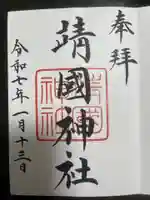 奉拝
靖國神社
令和七年一月十三日